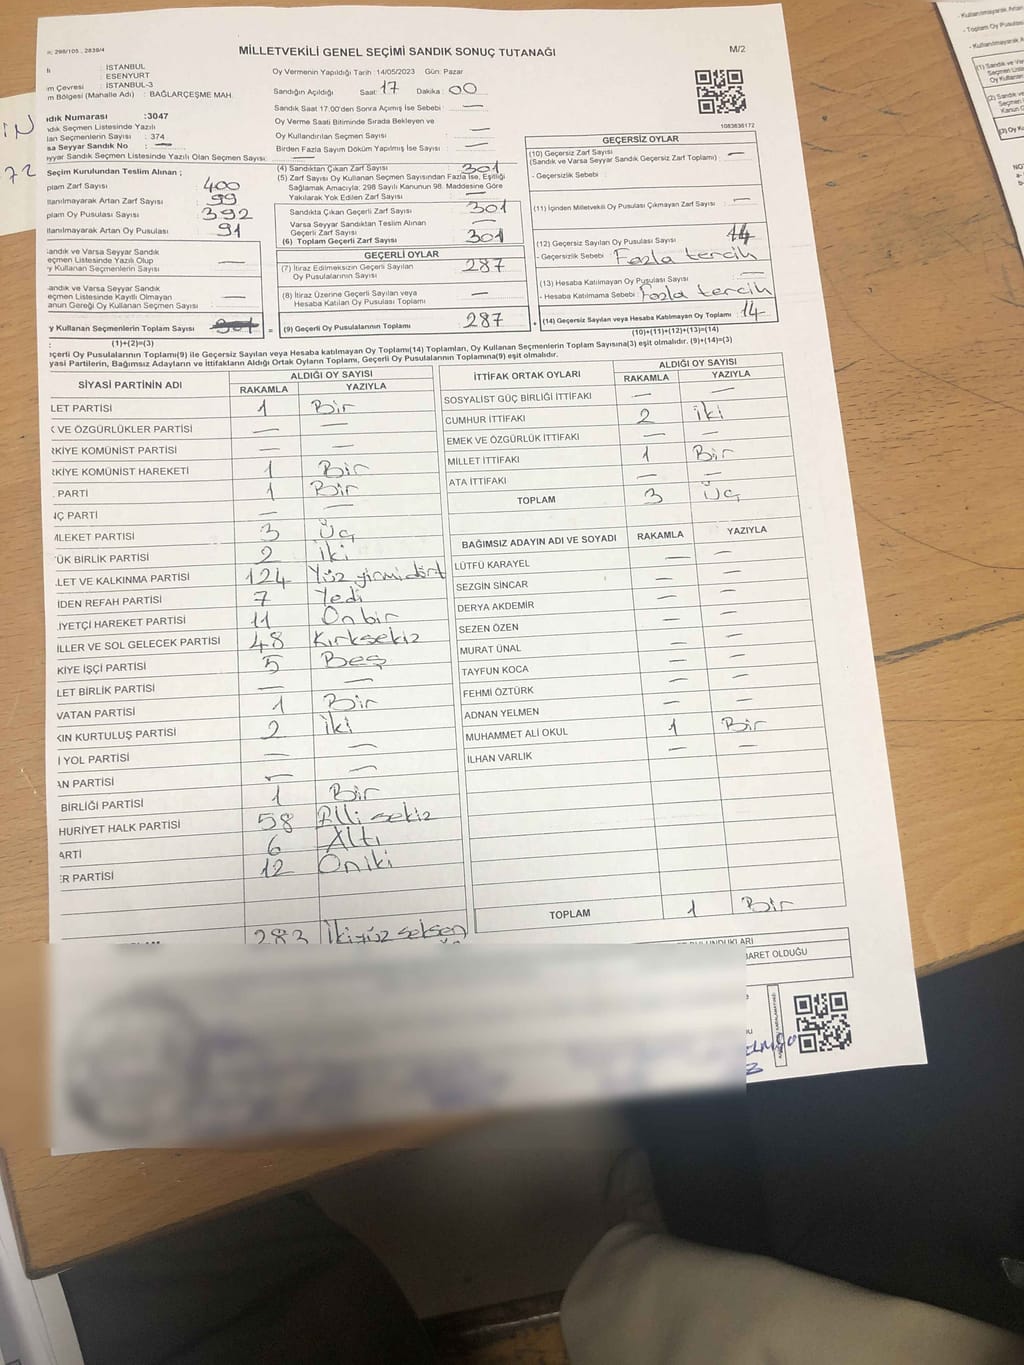 n; 298/105 , 2839/4
MİLLETVEKİLİ GENEL SEÇİMİ SANDIK SONUÇ TUTANAĞI
M/2
: İSTANBUL
: ESENYURT
m Çevresi : İSTANBUL-3
m Bölgesi (Mahalle Adı) : BAĞLARÇEŞME MAH.
Oy Vermenin Yapıldığı Tarih :14/05/2023 Gün: Pazar
Sandığın Açıldığı Saat: 17 Dakika: 00
Sandık Saat 17:00'den Sonra Açımış İse Sebebi : —
Oy Verme Saati Bitiminde Sırada Bekleyen ve
Oy Kullandırılan Seçmen Sayısı : —
Birden Fazla Sayım Döküm Yapılmış İse Sayısı : —
1083636172
ndık Numarası :3047
dık Seçmen Listesinde Yazılı
lan Seçmenlerin Sayısı : 374
sa Seyyar Sandık No : —
yyar Sandık Seçmen Listesinde Yazılı Olan Seçmen Sayısı: —
Seçim Kurulundan Teslim Alınan ;
plam Zarf Sayısı : 400
llanılmayarak Artan Zarf Sayısı : 99
plam Oy Pusulası Sayısı : 392
llanılmayarak Artan Oy Pusulası : 91
andık ve Varsa Seyyar Sandık
eçmen Listesinde Yazılı Olup
y Kullanan Seçmenlerin Sayısı : —
andık ve Varsa Seyyar Sandık
eçmen Listesinde Kayıtlı Olmayan
anun Gereği Oy Kullanan Seçmen Sayısı : —
y Kullanan Seçmenlerin Toplam Sayısı : 301
(1)+(2)=(3)
(4) Sandıktan Çıkan Zarf Sayısı : 301
(5) Zarf Sayısı Oy Kullanan Seçmen Sayısından Fazla İse, Eşitliği
Sağlamak Amacıyla; 298 Sayılı Kanunun 98. Maddesine Göre
Yakılarak Yok Edilen Zarf Sayısı : —
Sandıkta Çıkan Geçerli Zarf Sayısı : 301
Varsa Seyyar Sandıktan Teslim Alınan
Geçerli Zarf Sayısı : —
(6) Toplam Geçerli Zarf Sayısı : 301
GEÇERLİ OYLAR
(7) İtiraz Edilmeksizin Geçerli Sayılan
Oy Pusulalarının Sayısı : 287
(8) İtiraz Üzerine Geçerli Sayılan veya
Hesaba Katılan Oy Pusulası Toplamı : —
= (9) Geçerli Oy Pusulalarının Toplamı : 287
GEÇERSİZ OYLAR
(10) Geçersiz Zarf Sayısı
(Sandık ve Varsa Seyyar Sandık Geçersiz Zarf Toplamı) : —
- Geçersizlik Sebebi :
(11) İçinden Milletvekili Oy Pusulası Çıkmayan Zarf Sayısı : —
(12) Geçersiz Sayılan Oy Pusulası Sayısı : 14
- Geçersizlik Sebebi : Fazla tercih
(13) Hesaba Katılmayan Oy Pusulası Sayısı : —
- Hesaba Katılmama Sebebi : Fazla tercih
+ (14) Geçersiz Sayılan veya Hesaba Katılmayan Oy Toplamı : 14
(10)+(11)+(12)+(13)=(14)
çerli Oy Pusulalarının Toplamı(9) ile Geçersiz Sayılan veya Hesaba katılmayan Oy Toplamı(14) Toplamları, Oy Kullanan Seçmenlerin Toplam Sayısına(3) eşit olmalıdır. (9)+(14)=(3)
yasi Partilerin, Bağımsız Adayların ve İttifakların Aldığı Ortak Oyların Toplamı, Geçerli Oy Pusulalarının Toplamına(9) eşit olmalıdır.
SİYASİ PARTİNİN ADI ALDIĞI OY SAYISI
RAKAMLA YAZIYLA
LET PARTİSİ 1 Bir
VE ÖZGÜRLÜKLER PARTİSİ — —
RKİYE KOMÜNİST PARTİSİ — —
RKİYE KOMÜNİST HAREKETİ 1 Bir
PARTİ 1 Bir
Ç PARTİ — —
MLEKET PARTİSİ 3 Üç
ÜK BİRLİK PARTİSİ 2 iki
LET VE KALKINMA PARTİSİ 124 Yüz yirmidört
İDEN REFAH PARTİSİ 7 Yedi
İYETÇİ HAREKET PARTİSİ 11 Onbir
İLLER VE SOL GELECEK PARTİSİ 48 Kırksekiz
KİYE İŞÇİ PARTİSİ 5 Beş
LET BİRLİK PARTİSİ — —
VATAN PARTİSİ 1 Bir
KIN KURTULUŞ PARTİSİ 2 iki
İ YOL PARTİSİ — —
AN PARTİSİ — —
BİRLİĞİ PARTİSİ 1 Bir
HURİYET HALK PARTİSİ 58 Elli sekiz
ARTİ 6 Altı
ER PARTİSİ 12 Oniki
283 İkiyüz seksen
İTTİFAK ORTAK OYLARI ALDIĞI OY SAYISI
RAKAMLA YAZIYLA
SOSYALİST GÜÇ BİRLİĞİ İTTİFAKI — —
CUMHUR İTTİFAKI 2 iki
EMEK VE ÖZGÜRLÜK İTTİFAKI — —
MİLLET İTTİFAKI 1 Bir
ATA İTTİFAKI — —
TOPLAM 3 Üç
BAĞIMSIZ ADAYIN ADI VE SOYADI RAKAMLA YAZIYLA
LÜTFÜ KARAYEL — —
SEZGİN SİNCAR — —
DERYA AKDEMİR — —
SEZEN ÖZEN — —
MURAT ÜNAL — —
TAYFUN KOCA — —
FEHMİ ÖZTÜRK — —
ADNAN YELMEN — —
MUHAMMET ALİ OKUL 1 Bir
İLHAN VARLIK — —
TOPLAM 1 Bir
BARET OLDUĞU